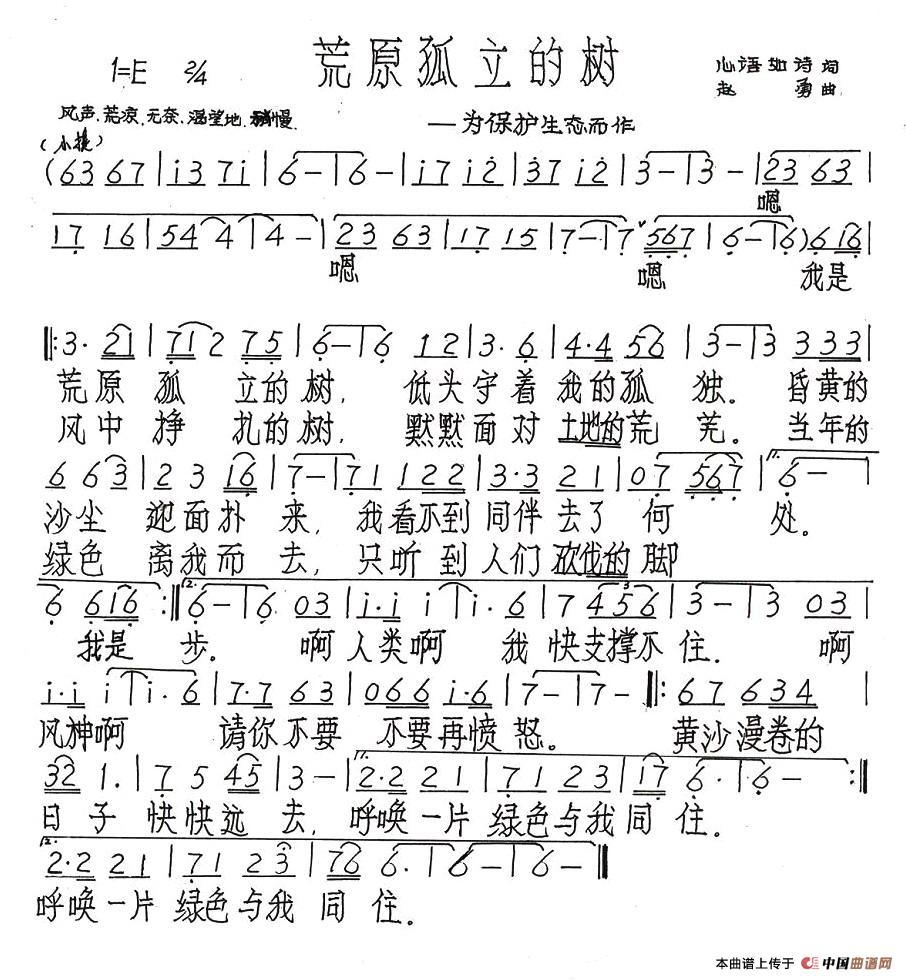 荒原孤立的树
1=E 2/4
心语如诗 词
赵 勇 曲
风声、荒凉、无奈、渴望地、慢
——为保护生态而作
(63 67 | i3 7i | 6 — | 6 — | i7 i2 | 37 i2 | 3 — | 3 — | 23 63 |
嗯
17 16 | 54 4 | 4 — | 23 63 | 17 15 | 7 — | 7 567 | 6 — | 6) 6 16 |
嗯 嗯 我是
‖: 3· 21 | 71 2 75 | 6 — | 6 12 | 3· 6 | 4·4 56 | 3 — | 3 333 |
荒原 孤 立的树, 低头守着我的孤 独。 昏黄的
风中 挣 扎的树, 默默面对 土地的荒 芜。 当年的
6 63 | 2 3 16 | 7 — | 71 122 | 3·3 21 | 07 567 | 1. 6 — |
沙尘 迎面扑 来, 我看不到同伴去了 何 处。
绿色 离我而 去, 只听到人们砍伐的脚
6 616 :‖ 2. 6 — | 6 03 | i·i i | i· 6 | 7 456 | 3 — | 3 03 |
我是 步。 啊人类啊 我 快支撑不 住. 啊
i·i i | i· 6 | 7·7 63 | 066 i·6 | 7 — | 7 — ‖: 67 634 |
风神啊 请你不要 不要再愤 怒。 黄沙漫卷的
32 1. | 7 5 45 | 3 — | 1. 2·2 21 | 71 23 | 17 6· | 6 — :‖
日 子 快快远 去, 呼唤一片 绿色与我同 住.
2. 2·2 21 | 71 23 | 76 6· | 6 — | 6 — ‖
呼唤一片 绿色与我 同 住.
本曲谱上传于 中国曲谱网